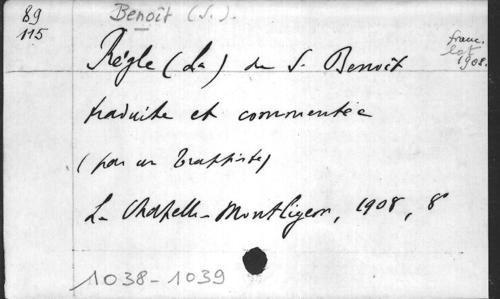 89
115
Benoît (S.).
franc.
lat
1908.
Règle (La) de S. Benoît
traduite et commentée
(par un Trappiste)
La Chapelle-Montligeon, 1908, 8°
1038-1039